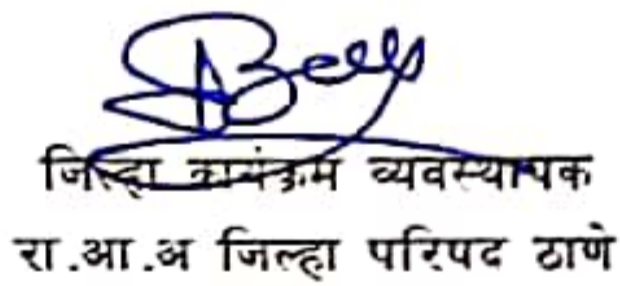 जिल्हा कार्यक्रम व्यवस्थापक
रा.आ.अ जिल्हा परिषद ठाणे